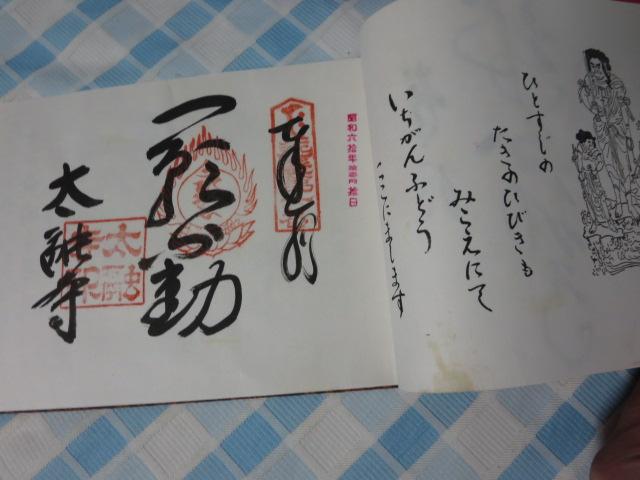 ひとすじの
たきのひびきも
みこえにて
いちがんふどう
こゝにまします
昭和六拾年
拾日
奉拝
一願不動
太融寺
太融
寺印